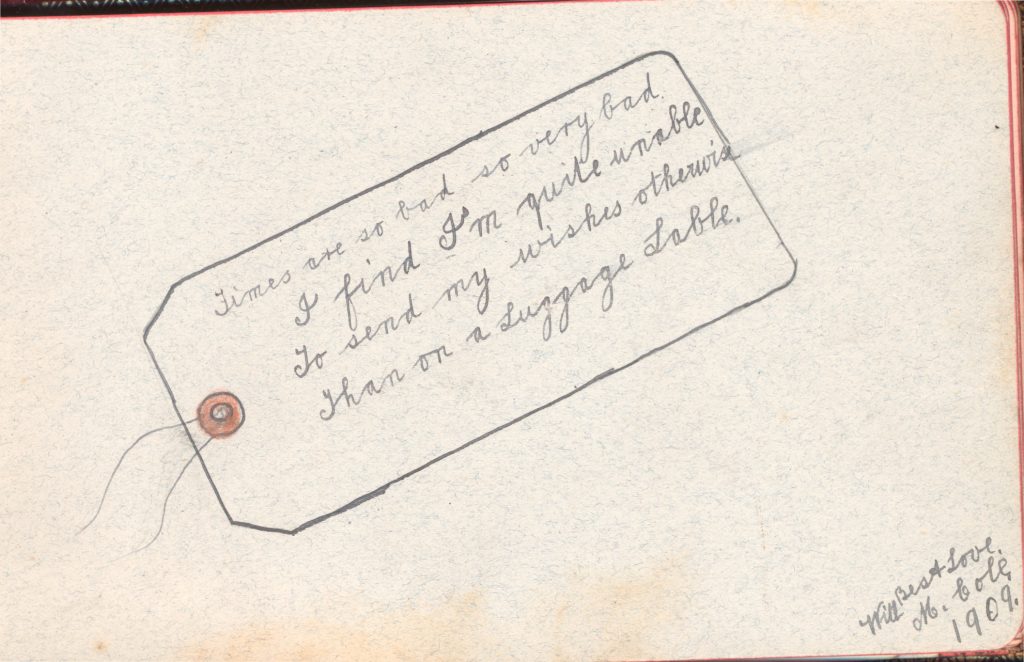 Times are so bad so very bad.
I find I'm quite unable
To send my wishes otherwise
Than on a Luggage Lable.
With Best Love.
M. Cole,
1909.